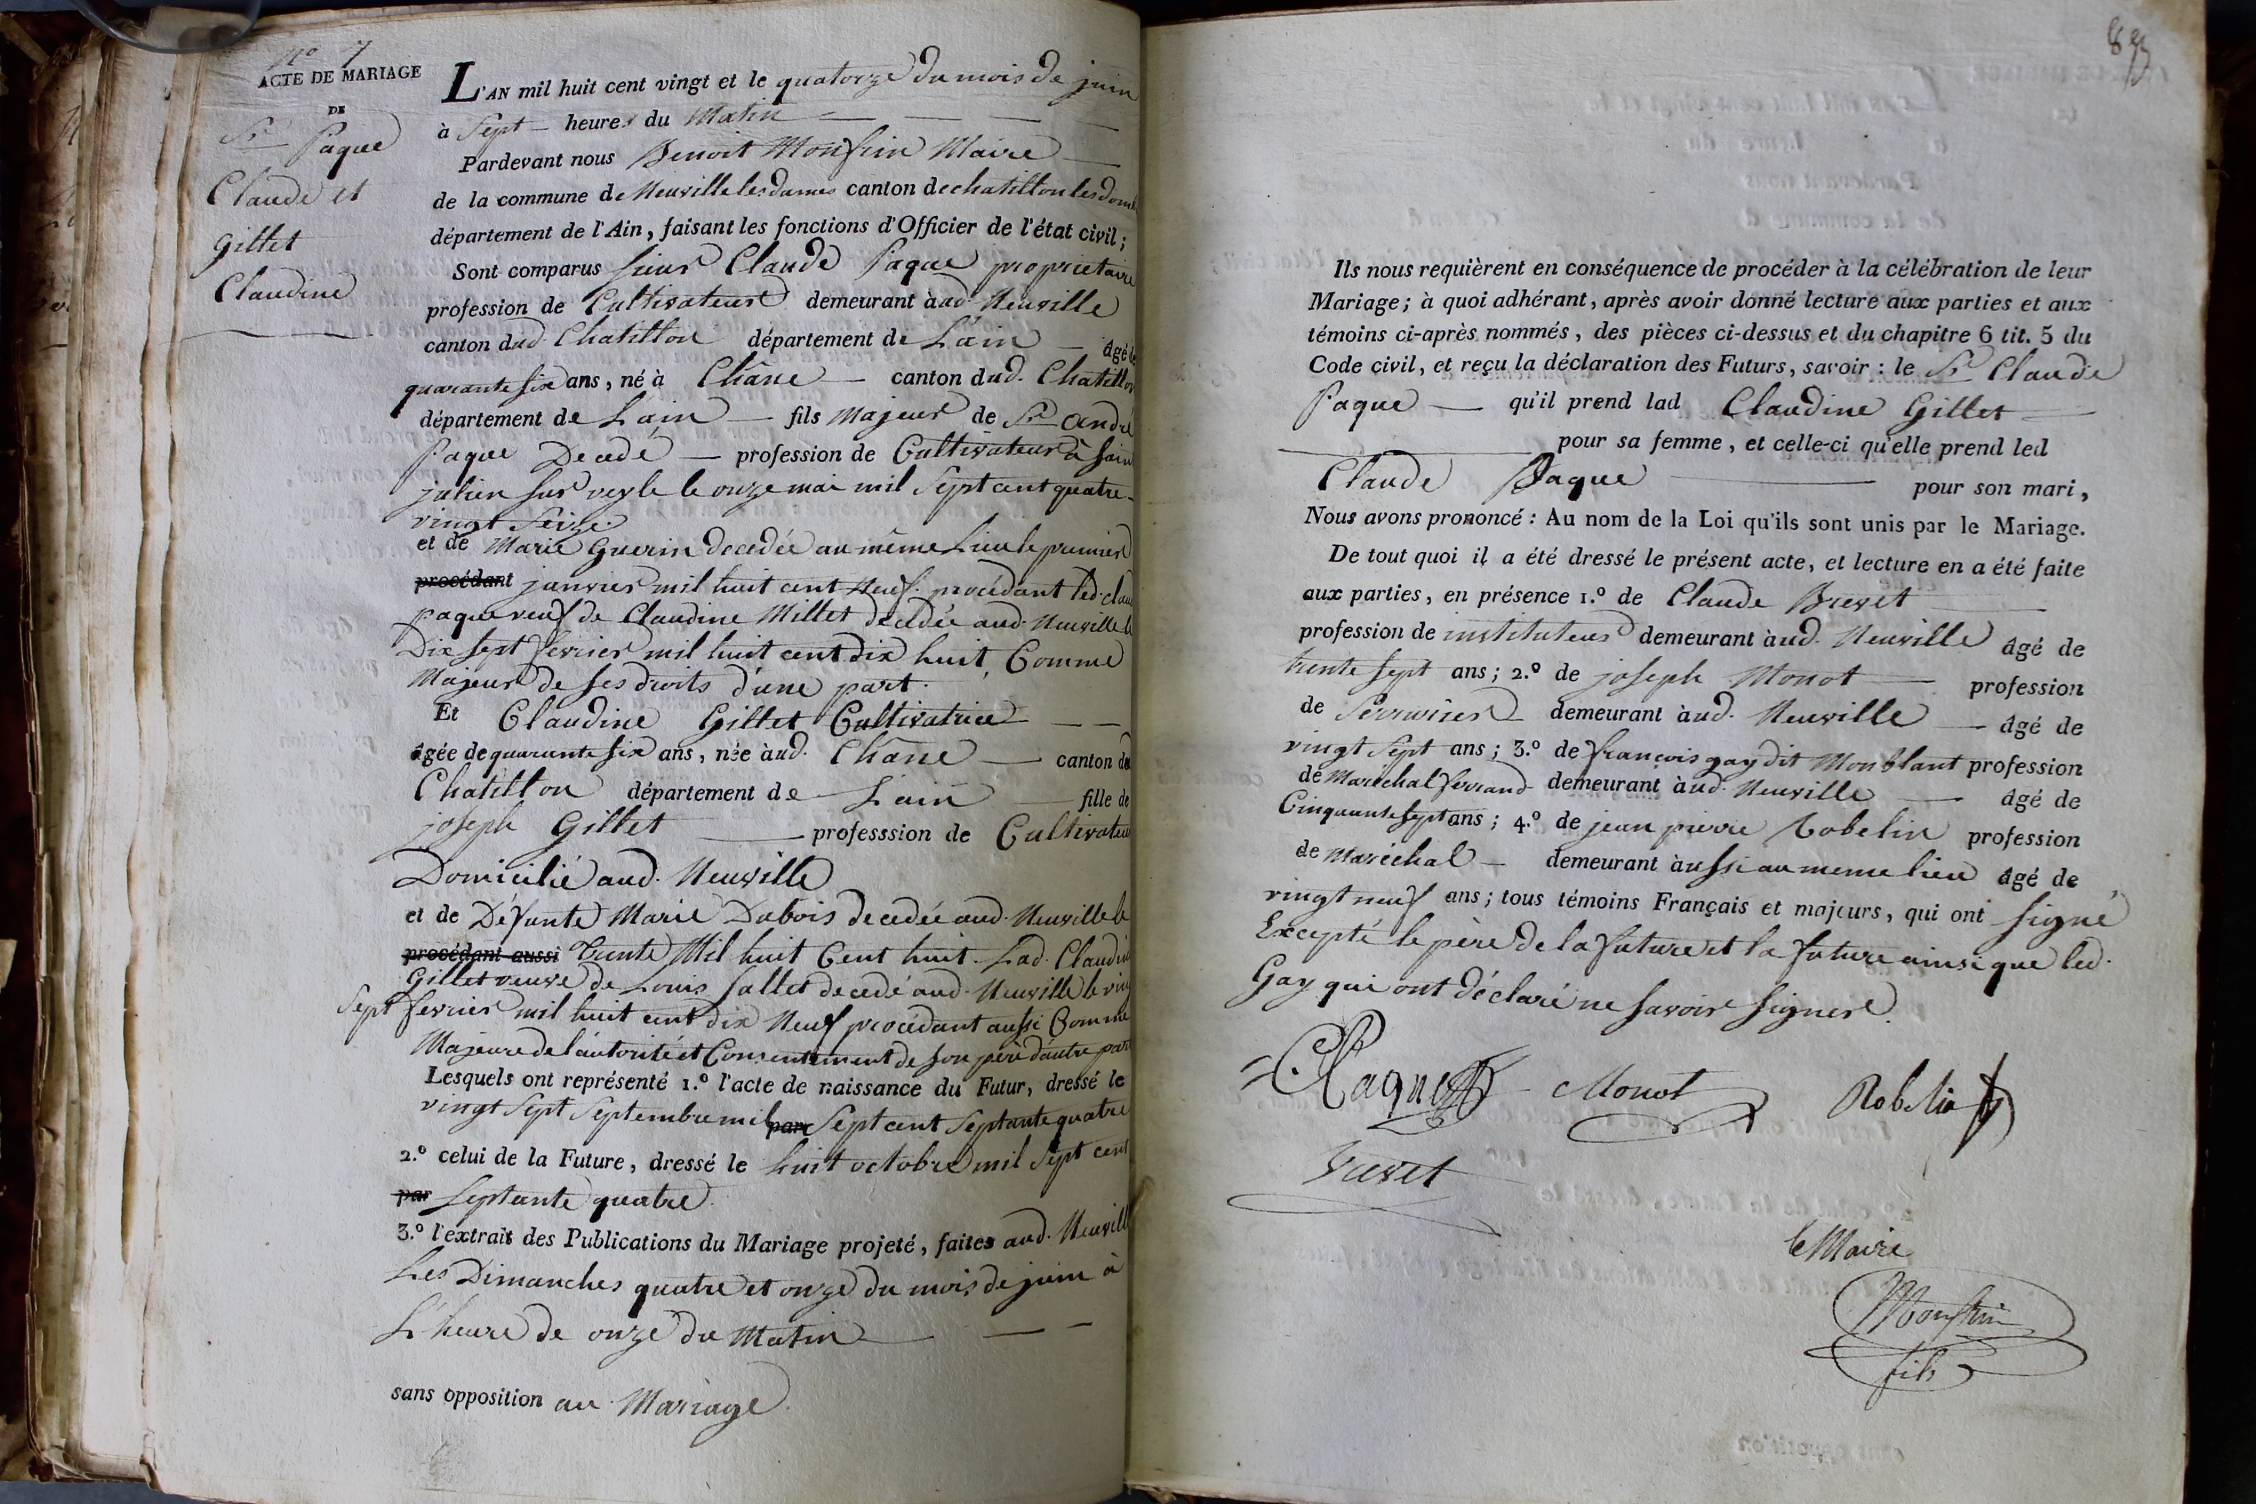 N.º 7
ACTE DE MARIAGE
DE
S.r Paque
Claude et
Gillet
Claudine
L'AN mil huit cent vingt et le quatorze du mois de juin
à Sept heures du Matin
Pardevant nous Benoit Monfrin Maire
de la commune de Neuville les dames canton de chatillon les domb
département de l'Ain, faisant les fonctions d'Officier de l'état civil;
Sont comparus sieur Claude Paque propriétaire
profession de Cultivateur demeurant àud. Neuville
canton dud. Chatillon département de L'ain âgé de
quarante six ans, né à Châne canton dud. Chatillon
département de Lain fils Majeur de S.r André
Paque Décédé profession de Cultivateur à Sain
julien sur veyle le onze mai mil Sept cent quatre
vingt Seize.
et de Marie Guerin decedée au même Lieu le premier
procédant janvier mil huit cent Neuf. procédant led. claud
paque veuf de Claudine Millet decedée aud. Neuville le
Dix sept fevrier mil huit cent dix huit, Comme
Majeur de ses droits d'une part.
Et Claudine Gillet Cultivatrice
âgée de quarante six ans, née àud. Châne canton de
Chatillon département de Lain fille de
joseph Gillet professsion de Cultivateur
Domicilié aud. Neuville
et de Défunte Marie Dubois decedée aud. Neuville le
procédant aussi trente Mil huit Cent huit. Lad. Claudine
Gillet veuve de Louis Sallet decedé aud. Neuville le ving
Sept fevrier mil huit cent dix Neuf procédant aussi Comme
Majeure de l'autorité et Consentement de son père d'autre part
Lesquels ont représenté 1.º l'acte de naissance du Futur, dressé le
vingt Sept Septembre mil par Sept cent Septante quatre
2.º celui de la Future, dressé le huit octobre mil Sept cent
par Septante quatre
3.º l'extrait des Publications du Mariage projeté, faites aud. Neuville
Les Dimanches quatre et onze du mois de juin à
L'heure de onze du Matin
sans opposition au Mariage.
89
Ils nous requièrent en conséquence de procéder à la célébration de leur
Mariage; à quoi adhérant, après avoir donné lecture aux parties et aux
témoins ci-après nommés, des pièces ci-dessus et du chapitre 6 tit. 5 du
Code civil, et reçu la déclaration des Futurs, savoir: le S.r Claude
Paque qu'il prend lad Claudine Gillet
pour sa femme, et celle-ci qu'elle prend led
Claude Paque pour son mari,
Nous avons prononcé: Au nom de la Loi qu'ils sont unis par le Mariage.
De tout quoi il a été dressé le présent acte, et lecture en a été faite
aux parties, en présence 1.º de Claude Brevet
profession de instituteur demeurant àud. Neuville âgé de
trente sept ans; 2.º de joseph Monot profession
de Serrurier demeurant àud. Neuville âgé de
vingt sept ans; 3.º de françois gay dit Monblant profession
de Maréchal ferrand demeurant àud. Neuville âgé de
Cinquante sept ans; 4.º de jean pierre Robelin profession
de Maréchal demeurant àussi au meme lieu âgé de
vingt neuf ans; tous témoins Français et majeurs, qui ont signé
Excepté le père de la future et la future ainsi que led.
Gay qui ont déclaré ne savoir signer.
C. Paque Monot Robelin
Brevet
le Maire
Monfrin
fils